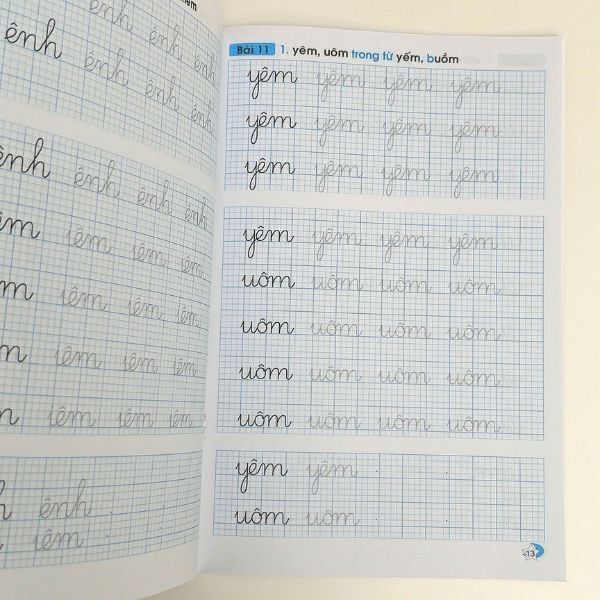 ênh ênh ênh
ênh ênh ênh ênh
ênh ênh ênh ênh
iêm iêm iêm
iêm iêm iêm
iêm iêm iêm
iêm iêm iêm
ênh
iêm
Bài 11 1. yêm, uôm trong từ yếm, buồm
yêm yêm yêm yêm
yêm yêm yêm yêm
yêm yêm yêm yêm
yêm yêm yêm yêm
uôm uôm uôm uôm
uôm uôm uôm uôm
uôm uôm uôm uôm
uôm uôm uôm uôm
yêm yêm
uôm uôm
13